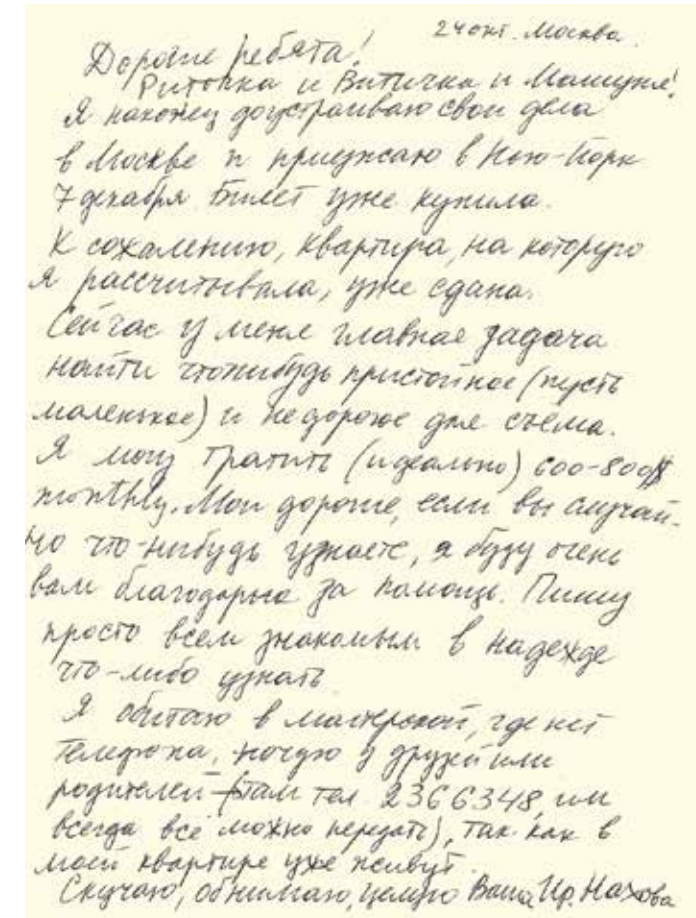 24 окт. Москва.
Дорогие ребята!
Риточка и Витичка и Машуня!
Я наконец доустраиваю свои дела
в Москве и приезжаю в Нью-Йорк
7 декабря. Билет уже купила.
К сожалению, квартира, на которую
я рассчитывала, уже сдана.
Сейчас у меня главная задача
найти чтонибудь пристойное (пусть
маленькое) и недорогое для съема.
Я могу тратить (идеально) 600-800$
monthly. Мои дорогие, если вы случай-
но что-нибудь узнаете, я буду очень
вам благодарна за помощь. Пишу
просто всем знакомым в надежде
что-либо узнать
Я обитаю в мастерской, где нет
телефона, ночую у друзей или
родителей (там тел. 2366348, им
всегда всё можно передать), так как в
моей квартире уже живут.
Скучаю, обнимаю, целую Ваша Ир. Нахова